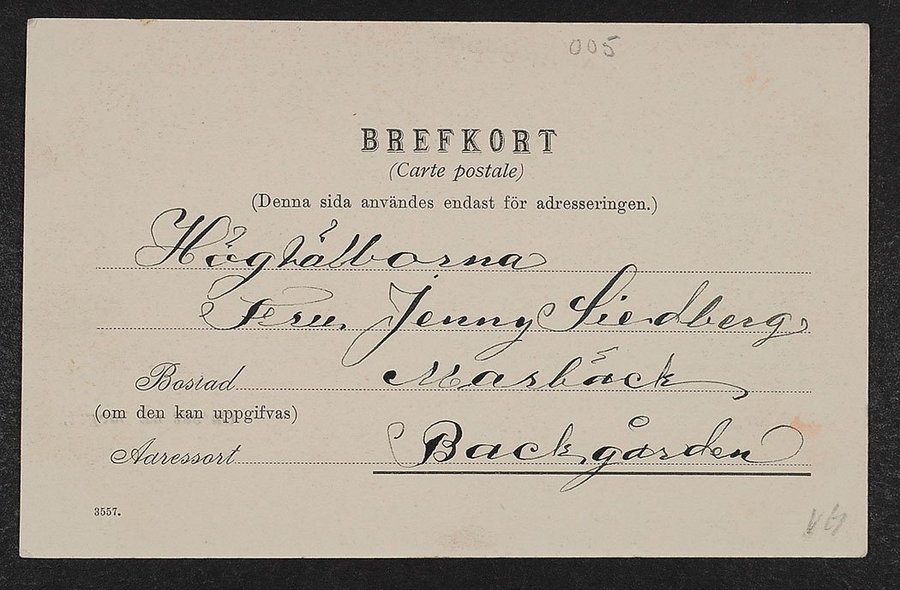 005
BREFKORT
(Carte postale)
(Denna sida användes endast för adresseringen.)
Högvälborna
Fru Jenny Siedberg
Bostad Marbäck
(om den kan uppgifvas)
Adressort Backgården
3557.